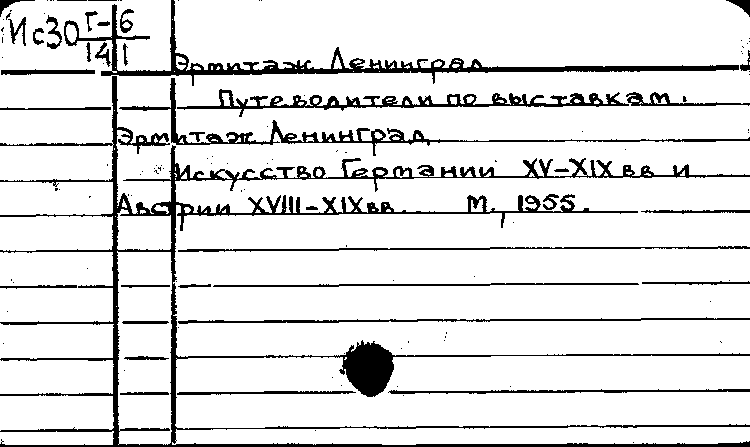 Ис30 Г-6
14 1
Эрмитаж Ленинград
Путеводители по выставкам.
Эрмитаж Ленинград
Искусство Германии XV-XIX вв и
Австрии XVIII-XIX вв. М., 1955.